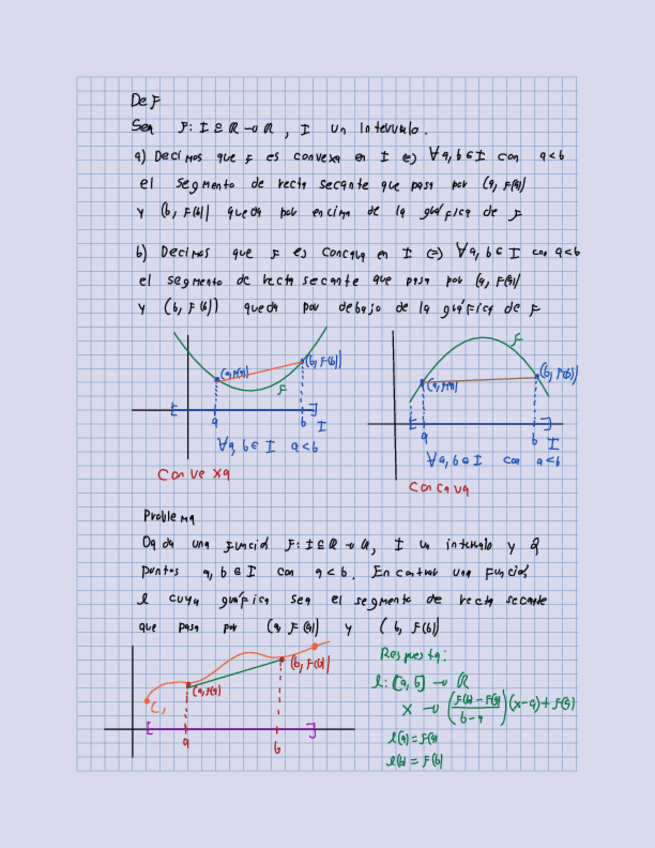 Def
Sea f: I ⊆ R → R, I un intervalo.
a) Decimos que f es convexa en I ⇔ ∀ a, b ∈ I con a < b
el segmento de recta secante que pasa por (a, f(a))
y (b, f(b)) queda por encima de la gráfica de f
b) Decimos que f es concava en I ⇔ ∀ a, b ∈ I con a < b
el segmento de recta secante que pasa por (a, f(a))
y (b, f(b)) queda por debajo de la gráfica de f
(a, f(a)) (b, f(b))
f
a b I
∀ a, b ∈ I a < b
Convexa
f
(a, f(a)) (b, f(b))
a b I
∀ a, b ∈ I con a < b
Concava
Problema
Dada una función f: I ⊆ R → R, I un intervalo y 2
puntos a, b ∈ I con a < b. Encontrar una función
l cuya gráfica sea el segmento de recta secante
que pasa por (a, f(a)) y (b, f(b))
(a, f(a)) (b, f(b))
a b
Respuesta:
l: [a, b] → R
x → ((f(b) - f(a))/(b - a))(x - a) + f(a)
l(a) = f(a)
l(b) = f(b)